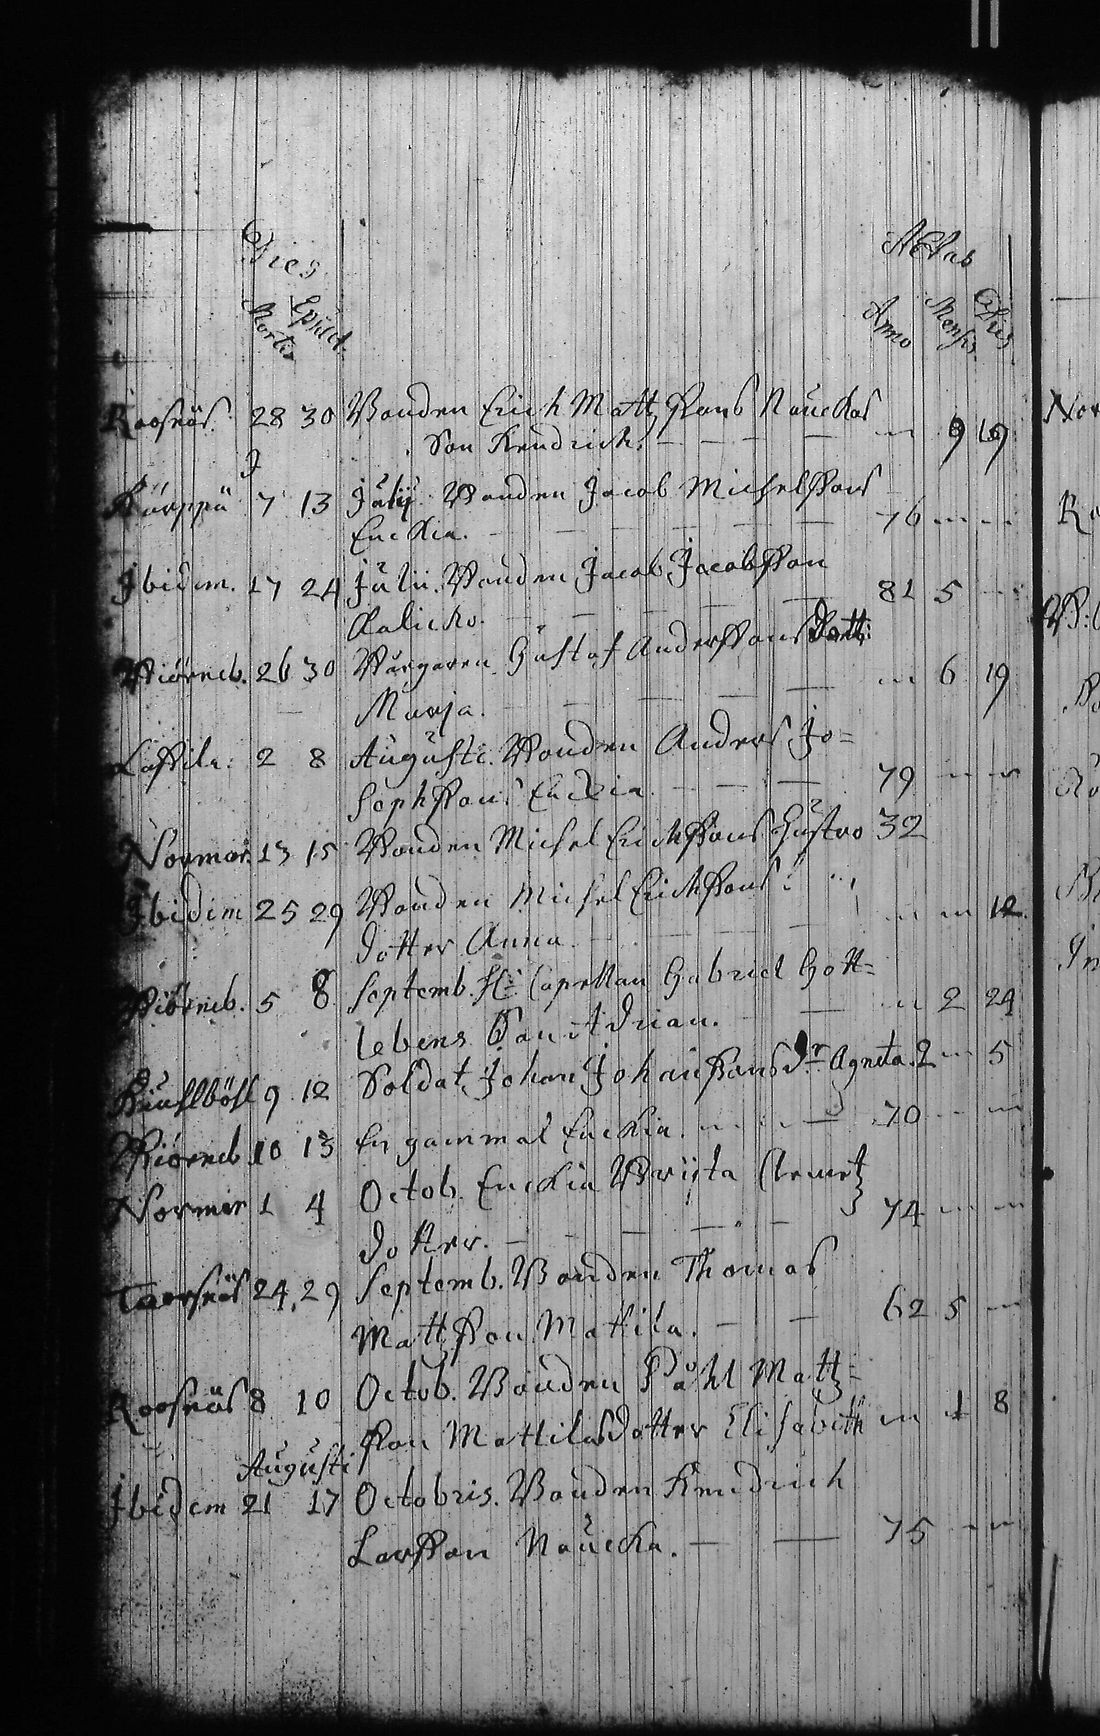 Dies
Mortis Sepult.
Ætas
Anno Mensis Dies
Roosnäs 28 30 Bonden Erich Mattssons Nauckas
Son Hendrich. 9 19
Kärppä 7 13 Julij. Bonden Jacob Michelssons
Enckia. 76
Ibidem. 17 24 Julii. Bonden Jacob Jacobsson
81 5
Biörneb. 26 30 Borgaren Gustaf Anderssons Dott:
Maria. 6 19
Lassila: 2 8 Augusti. Bonden Anders Jo-
sephsons Enckia 79
Normar. 13 15 Bonden Michel Erichssons Hustro 32
Ibidem 25 29 Bonden Michel Erichssons
dotter Anna 12
Biörneb. 5 8 Septemb. Hr Capellan Gabriel Gott-
lebens Son Adrian. 2 24
9 12 Soldat Johan Johanssons Dr Agneta. 2 5
Biörneb. 10 13 En gammal Enckia. 70
Normar 1 4 Octob. Enckia Brijta Clemetz
dotter. 74
24 29 Septemb. Bonden Thomas
Mattsson Mattila. 62 5
Roosnäs 8 10 Octob. Bonden Påhl Matts-
son Mattilas dotter Elisabeth 1 8
Augusti
Ibidem 21 17 Octobris. Bonden Hendrich
Larsson Naucka. 75